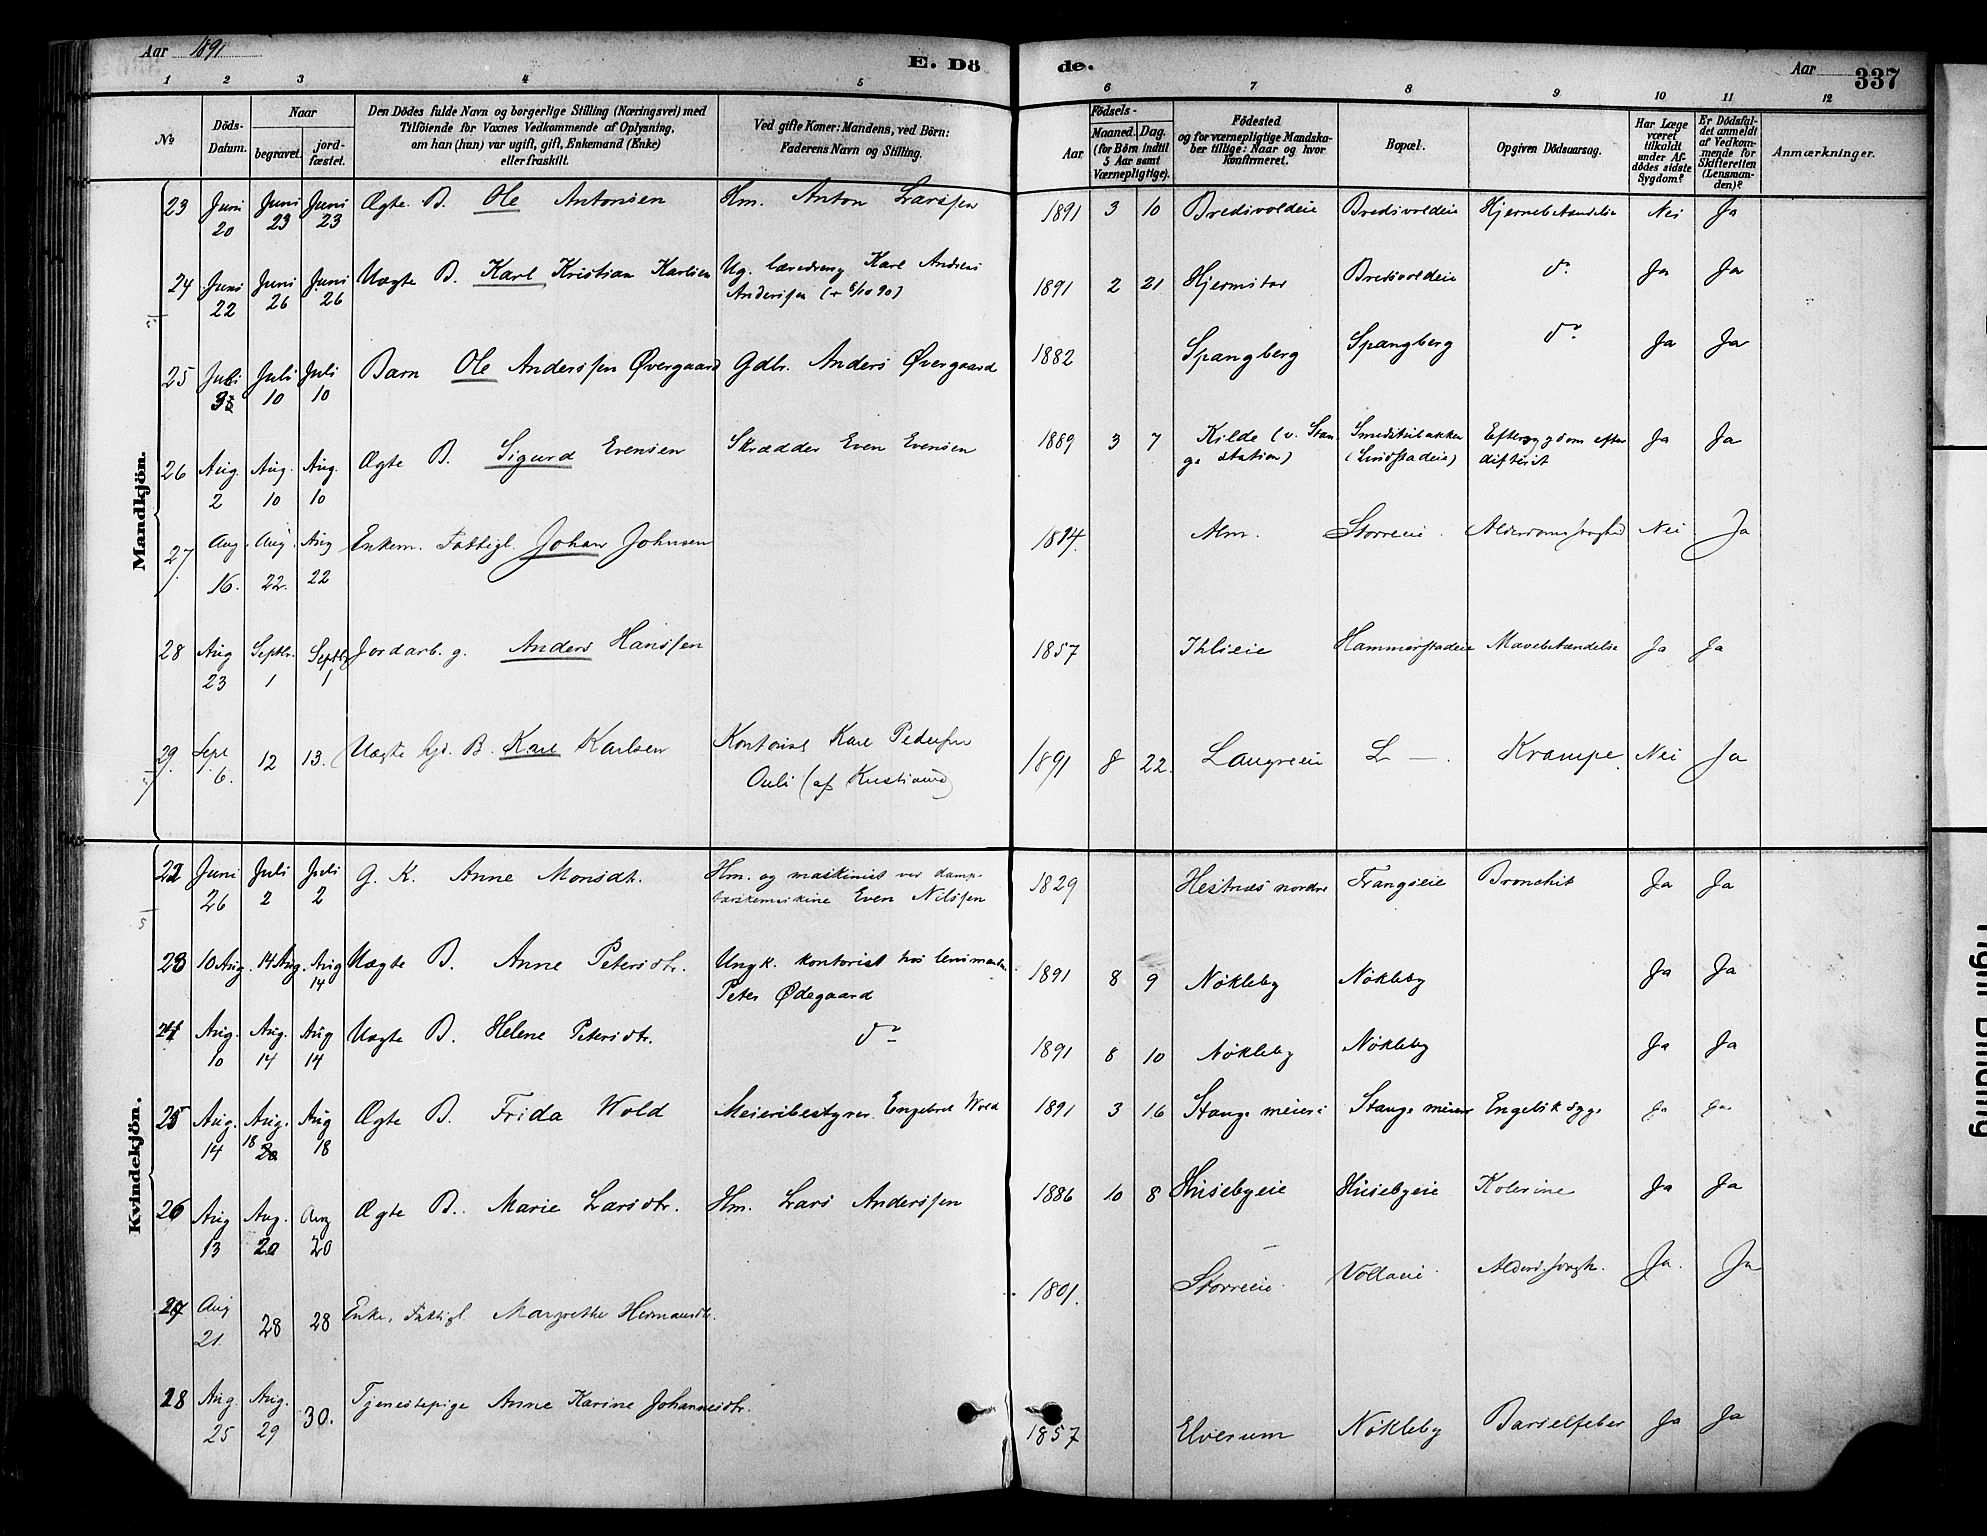 Aar 1891
E. Dö
de.
Aar 337
1 2 3 4 5 6 7 8 9 10 11 12
№
Döds-Datum.
Naar
begravet.
jordfæstet.
Den Dödes fulde Navn og borgerlige Stilling (Næringsvei) med
Tilföiende for Voxnes Vedkommende af Oplysning,
om han (hun) var ugift, gift, Enkemand (Enke)
eller fraskilt.
Ved gifte Koner: Mandens, ved Börn:
Faderens Navn og Stilling.
Födsels-
Aar
Maaned. Dag.
(for Börn indtil
5 Aar samt
Værnepligtige).
Födested
og for værnepligtige Mandskaber tillige: Naar og hvor
Konfirmeret.
Bopæl.
Opgiven Dödsaarsag.
Har Læge
været
tilkaldt
under Afdödes sidste
Sygdom?
Er Dödsfaldet anmeldt
af Vedkommende for
Skifteretten
(Lensmanden)?
Anmærkninger.
Mandkjön.
23 Juni 20 Juni 23 Juni 23 Ægte B. Ole Antonsen Hm. Anton Larssen 1891 3 10 Bredsvoldeie Bredsvoldeie Hjernebetændelse Nei Ja
24 Juni 22 Juni 26 Juni 26 Uægte B. Karl Kristian Karlsen Ug. læredreng Karl Andreas
Anderssen (+ 6/10 90) 1891 2 21 Hjermstad Bredsvoldeie do. Ja Ja
25 Juli 3 Juli 10 Juli 10 Barn Ole Anderssen Øvergaard Gdbr. Anders Øvergaard 1882 Spangberg Spangberg do. Ja Ja
26 Aug 2 Aug. 10 Aug. 10 Ægte B. Sigurd Evensen Skrædder Even Evensen 1889 3 7 Kilde (v. Stange station) Smedstubakken
(Lindstadeie) Eftersygdom efter
difterit Ja Ja
27 Aug. 16. Aug. 22. Aug 22 Enkem. Fattigl. Johan Johnsen 1814. Alm. Storreeie. Alderdomssvaghed Nei Ja
28 Aug 23 Septbr. 1 Septbr 1 Jordarb. g. Anders Hanssen 1857 Ihlseie Hammerstadeie Mavebetændelse Ja Ja
29. Sept 6. 12 13. Uægte B. Karl Karlsen Kontorist Karl Pedersen
(af Kristiania) 1891 8 22. Langreeie L —. Krampe Nei Ja
Kvindekjön.
22 Juni 26 Juli 2 Juli 2 G. K. Anne Monsdt. Hm. og maskinist ved damp-
tærskemaskine Even Nilssen 1829 Hestnæs nordre Frangseie Bronchit Ja Ja
23 10 Aug. 14 Aug. Aug 14 Uægte B. Anne Petersdtr. Ungk. kontorist hos lensmanden
Peter Ødegaard 1891 8 9 Nøkleby Nøkleby Ja Ja
24 Aug. 10 Aug. 14 Aug 14 Uægte B. Helene Petersdtr. do 1891 8 10 Nøkleby Nøkleby Ja Ja
25 Aug. 14 Aug. 18 20 Aug 18 Ægte B. Frida Wold Meieribestyrer Engebret Wold 1891 3 16 Stange meieri Stange meieri Engelsk syge Ja Ja
26 Aug 13 Aug. 20 Aug 20 Ægte B. Marie Larsdtr. Hm. Lars Anderssen 1886 10 8 Husebyeie Husebyeie Kolerine Ja Ja
27 Aug 21. 28 28 Enke, Fattigl. Margrethe Hermansdtr. 1801. Storreeie Voldeie Alderssvagh. Ja. Ja
28 Aug. 25 Aug. 29 30. Tjenestepige Anne Karine Johannesdtr. 1857 Elverum Nøkleby Barselfeber Ja Ja